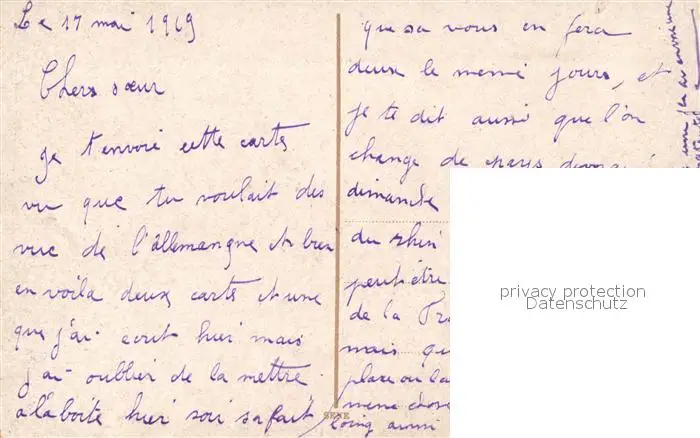 Le 17 mai 1919
Chers sœur
je t'envoie cette cartes
vu que tu voulait des
vue de l'allemangne et bien
en voila deux cartes et une
que j'ai ecrit hier mais
j'ai oublier de la mettre
à la boite hier soir sa fait
que sa vous en fera
deux le meme jours, et
je te dit aussi que l'on
change de
dimanche
du rhin
peut être
de la
mais
place ou la
meme chose
loing aussi
SENE
privacy protection
Datenschutz